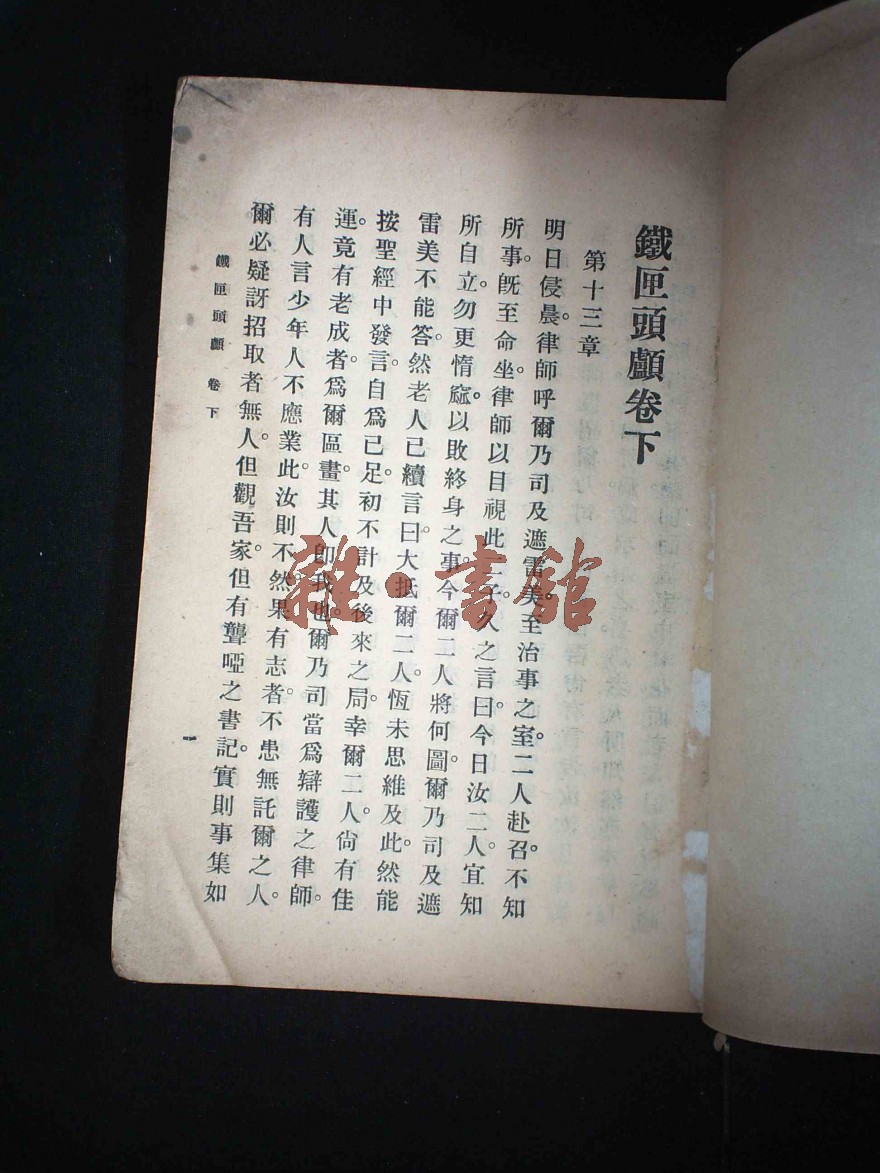 鐵匣頭顱卷下
第十三章
明日侵晨。律師呼爾乃司及遮雷美。至治事之室。二人赴召。不知
所事。旣至命坐。律師以目視此二子。久之言曰。今日汝二人宜知
所自立。勿更惰窳。以敗終身之事。今爾二人將何圖。爾乃司及遮
雷美不能答。然老人已續言曰。大抵爾二人。恆未思維及此。然能
按聖經中發言。自爲已足。初不計及後來之局。幸爾二人尙有佳
運。竟有老成者爲爾區畫。其人卽我也。爾乃司當爲辯護之律師。
有人言少年人不應業此。汝則不然。果有志者。不患無託爾之人。
爾必疑訝招取者無人。但觀吾家。但有聾啞之書記。實則事集如
鐵匣頭顱 卷下
一
雜·書館